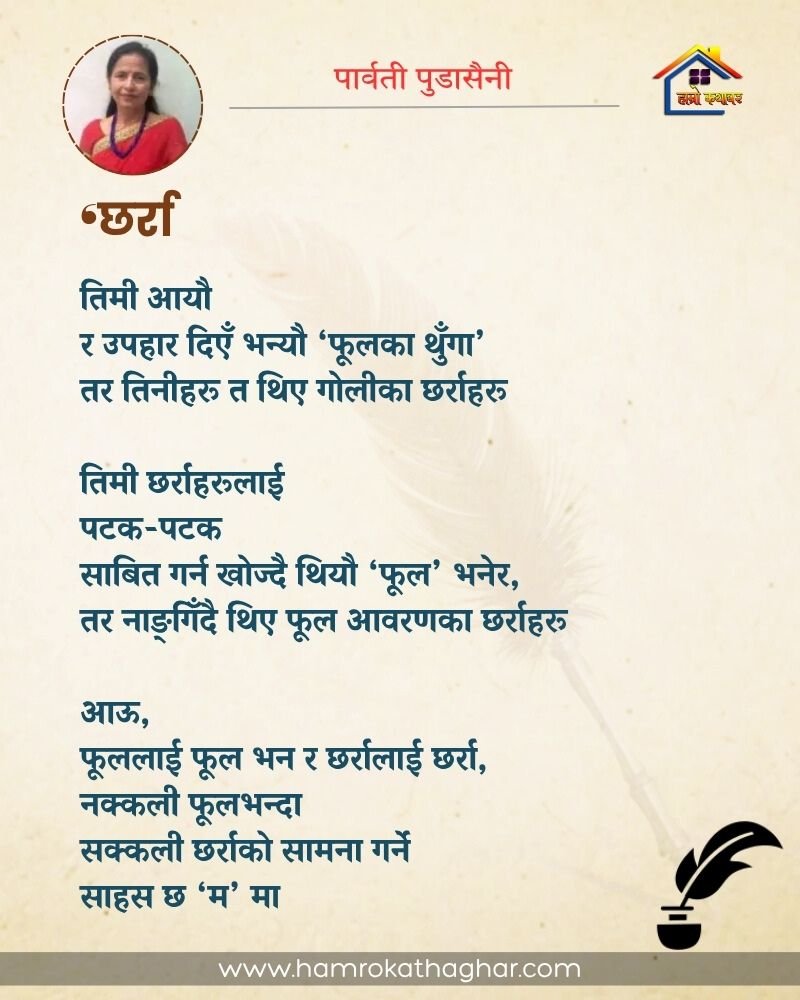 पार्वती पुडासैनी
हाम्रो कथाघर
‘छर्रा
तिमी आयौ
र उपहार दिएँ भन्यौ ‘फूलका थुँगा’
तर तिनीहरु त थिए गोलीका छर्राहरु
तिमी छर्राहरुलाई
पटक-पटक
साबित गर्न खोज्दै थियौ ‘फूल’ भनेर,
तर नाङ्गिँदै थिए फूल आवरणका छर्राहरु
आऊ,
फूललाई फूल भन र छर्रालाई छर्रा,
नक्कली फूलभन्दा
सक्कली छर्राको सामना गर्ने
साहस छ ‘म’ मा
www.hamrokathaghar.com